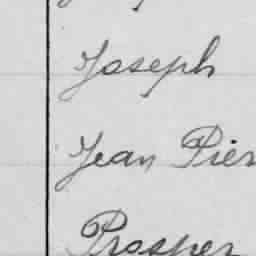 Joseph
Jean Pier
Prosper